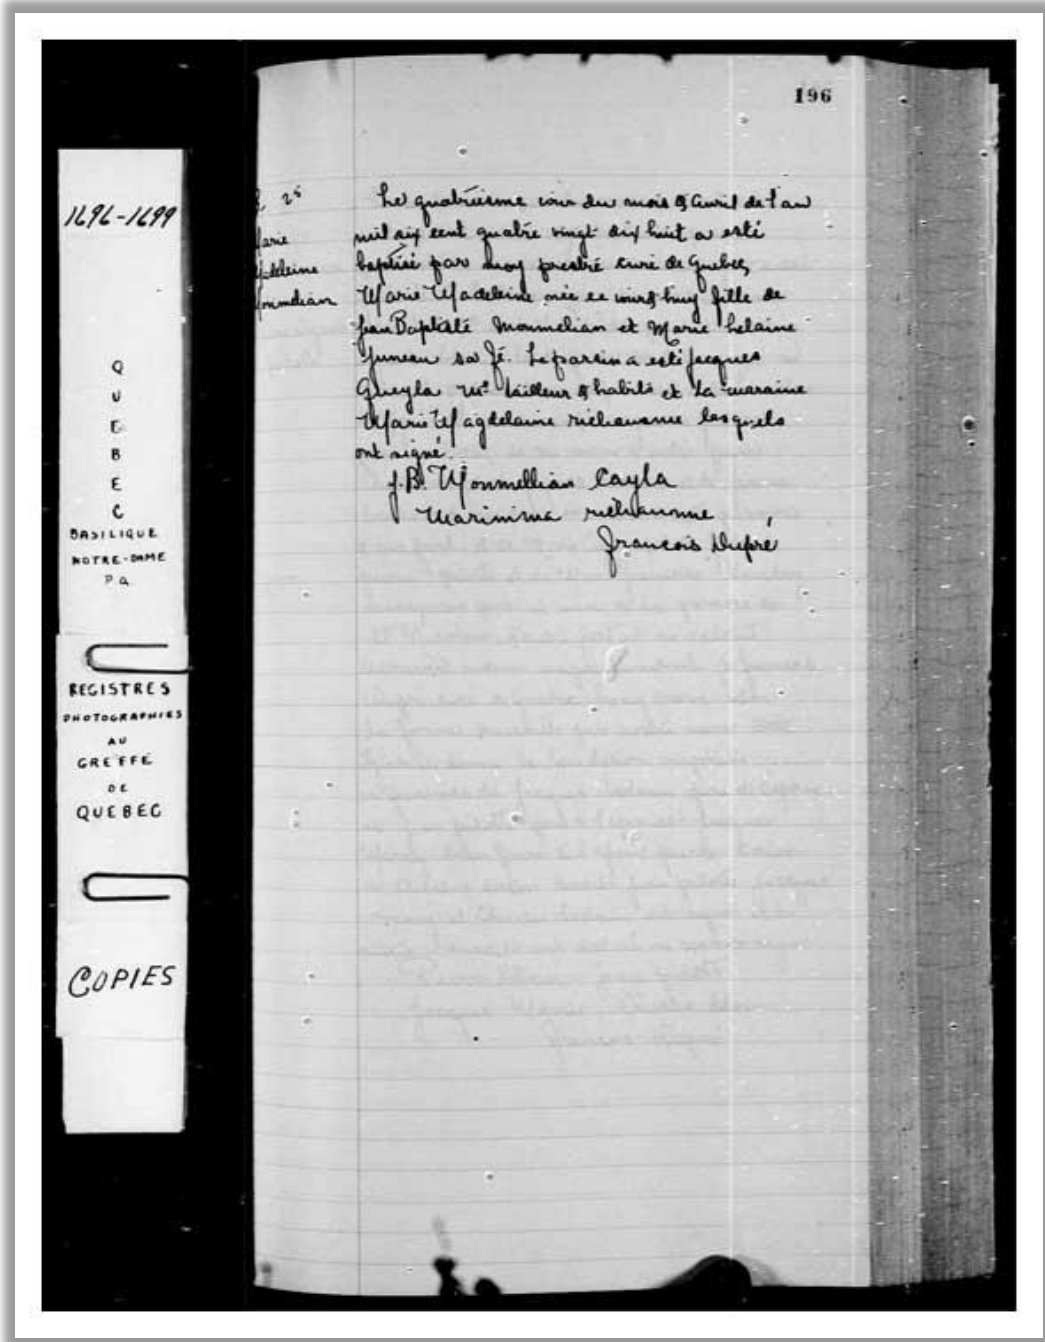 196
1696-1699
QUEBEC
BASILIQUE
NOTRE-DAME
P.Q.
REGISTRES
PHOTOGRAPHIES
AU
GREFFE
DE
QUEBEC
COPIES
25
arie
deleine
onmelian
Le quatriesme iour du mois d'Avril de l'an
mil six cent quatre vingt dix huit a esté
baptisé par moy prestre curé de Quebec
Marie Madeleine née ce iourd'huy fille de
Jean Baptiste Monmelian et Marie helaine
Juneau sa fē. Le parrin a esté Jacques
Gueyla me tailleur d'habits et la maraine
Marie Magdelaine richaumme lesquels
ont signé.
J. B. Monmellian Cayla
richaumme
francois Dupré